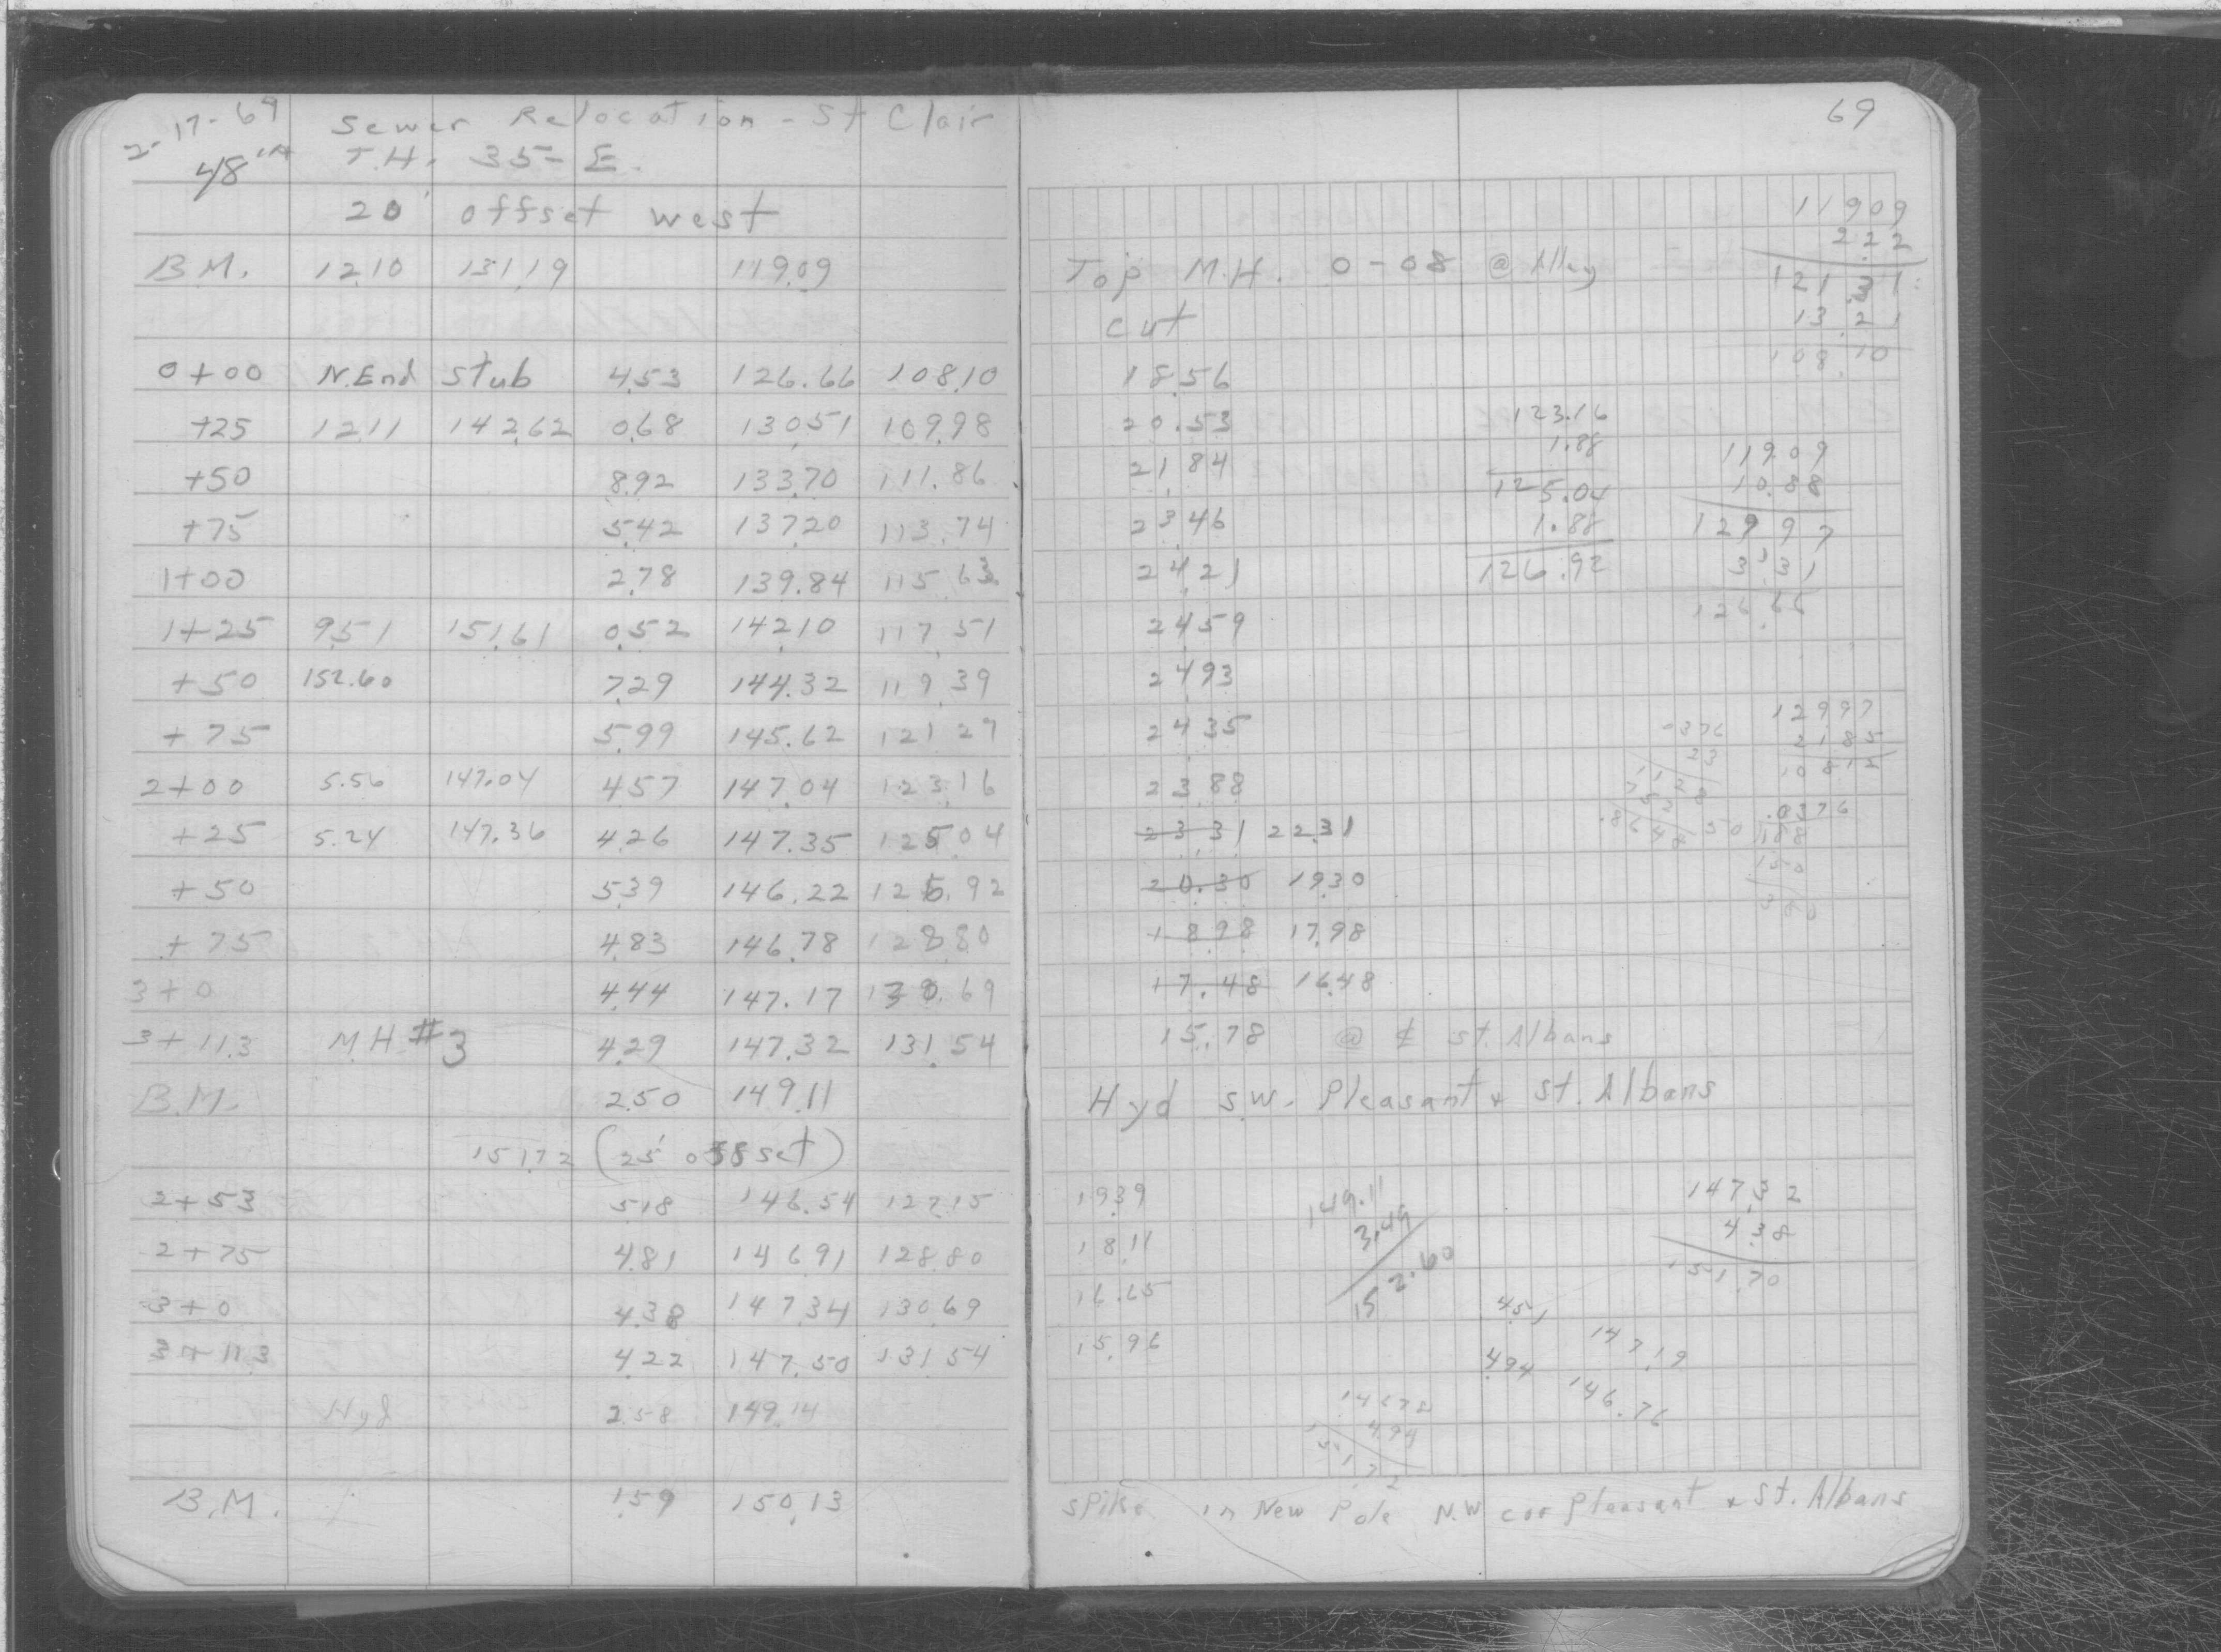 2-17-69 Sewer Relocation - St Clair
48" T.H. 35-E.
20' offset west
B.M. 12.10 131.19 119.09
0+00 N.End Stub 4.53 126.66 108.10
+25 12.11 142.62 0.68 130.51 109.98
+50 8.92 133.70 111.86
+75 5.42 137.20 113.74
1+00 2.78 139.84 115.63
1+25 9.51 151.61 0.52 142.10 117.51
+50 152.60 7.29 144.32 119.39
+75 5.99 145.62 121.27
2+00 5.56 147.04 4.57 147.04 123.16
+25 5.24 147.36 4.26 147.35 125.04
+50 5.39 146.22 126.92
+75 4.83 146.78 128.80
3+0 4.44 147.17 130.69
3+11.3 M.H. #3 4.29 147.32 131.54
B.M. 2.50 149.11
151.72 (25' offset)
2+53 5.18 146.54 127.15
2+75 4.81 146.91 128.80
3+0 4.38 147.34 130.69
3+11.3 4.22 147.50 131.54
Hyd 2.58 149.14
B.M. 1.59 150.13
69
Top M.H. 0-08 @ Alley
cut
18.56
20.53
21.84
23.46
24.21
24.59
24.93
24.35
23.88
23.31 22.31
20.30 19.30
18.98 17.98
17.48 16.48
15.78 @ ₵ St. Albans
Hyd S.W. Pleasant & St. Albans
19.39
18.11
16.65
15.96
spike in New Pole N.W cor Pleasant & St. Albans
119.09
2.22
121.31
13.21
108.10
123.16
1.88
125.04
1.88
126.92
119.09
10.88
129.97
3.31
126.66
129.97
21.85
108.12
.0376
23
.0376
188
149.11
3.49
152.60
147.32
4.38
151.70
4.51 147.19
4.94 146.76
146.78
4.94
151.72